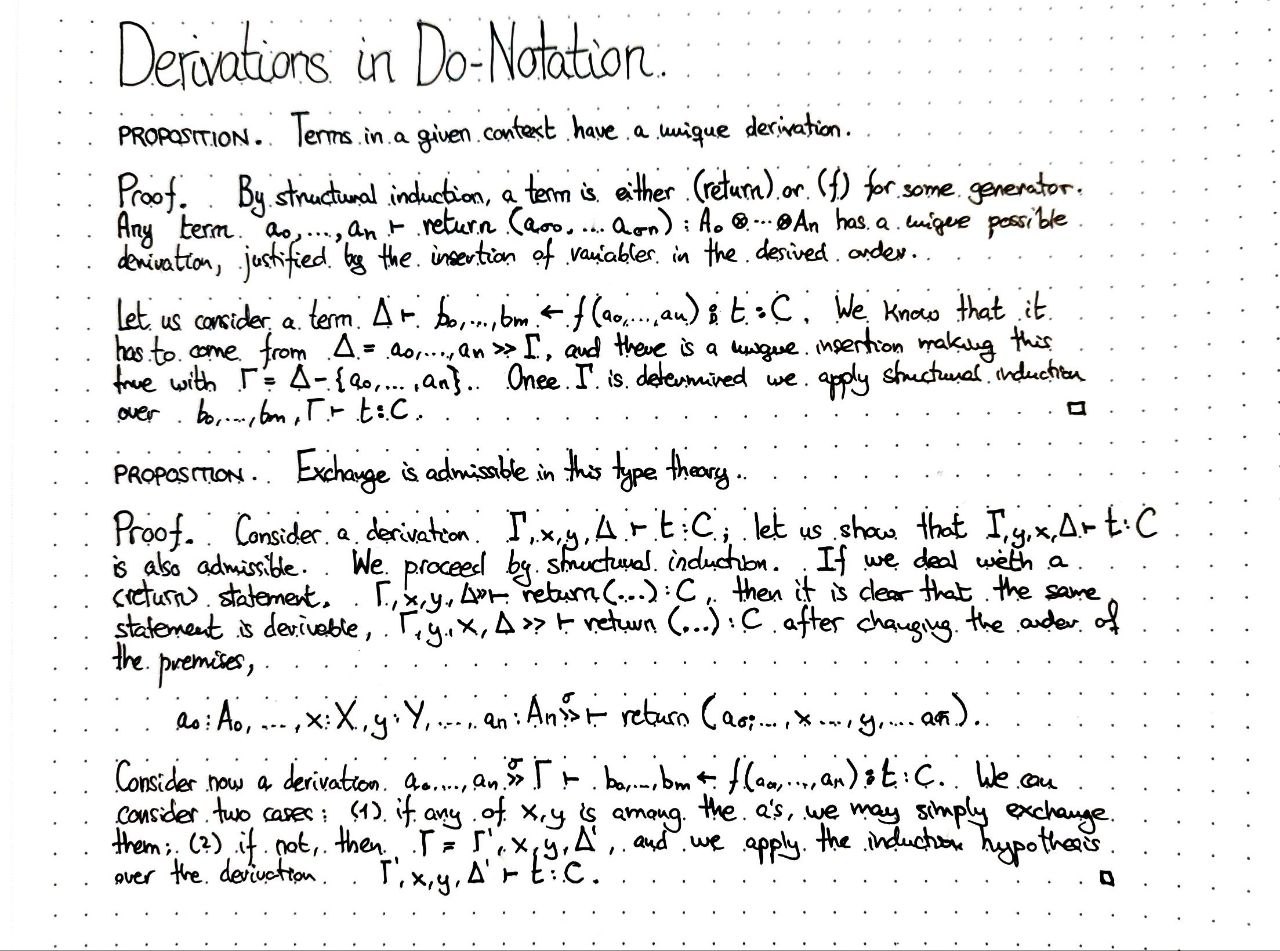 Derivations in Do-Notation.
PROPOSITION. Terms in a given context have a unique derivation.
Proof. By structural induction, a term is either (return) or (f) for some generator.
Any term a₀,…,aₙ ⊢ return (a_σ₀,… a_σₙ) : A₀ ⊗ ⋯ ⊗ Aₙ has a unique possible
derivation, justified by the insertion of variables in the desired order.
Let us consider a term Δ ⊢ b₀,…,bₘ ← f(a₀,…,aₙ) ⨟ t : C. We know that it
has to come from Δ = a₀,…,aₙ ≫ Γ, and there is a unique insertion making this
true with Γ = Δ - {a₀,…,aₙ}. Once Γ is determined we apply structural induction
over b₀,…,bₘ, Γ ⊢ t : C. □
PROPOSITION. Exchange is admissible in this type theory.
Proof. Consider a derivation Γ, x, y, Δ ⊢ t : C; let us show that Γ, y, x, Δ ⊢ t : C
is also admissible. We proceed by structural induction. If we deal with a
(return) statement, Γ, x, y, Δ ≫ ⊢ return (...) : C, then it is clear that the same
statement is derivable, Γ, y, x, Δ ≫ ⊢ return (...) : C after changing the order of
the premises,
a₀ : A₀, …, x : X, y : Y, …, aₙ : Aₙ ≫^σ ⊢ return (a_σ₀, …, x …, y, … a_σₙ).
Consider now a derivation a₀,…,aₙ ≫^σ Γ ⊢ b₀,…,bₘ ← f(a₀,…,aₙ) ⨟ t : C. We can
consider two cases: (1) if any of x, y is among the a's, we may simply exchange
them; (2) if not, then Γ = Γ', x, y, Δ', and we apply the induction hypothesis
over the derivation Γ', x, y, Δ' ⊢ t : C. □